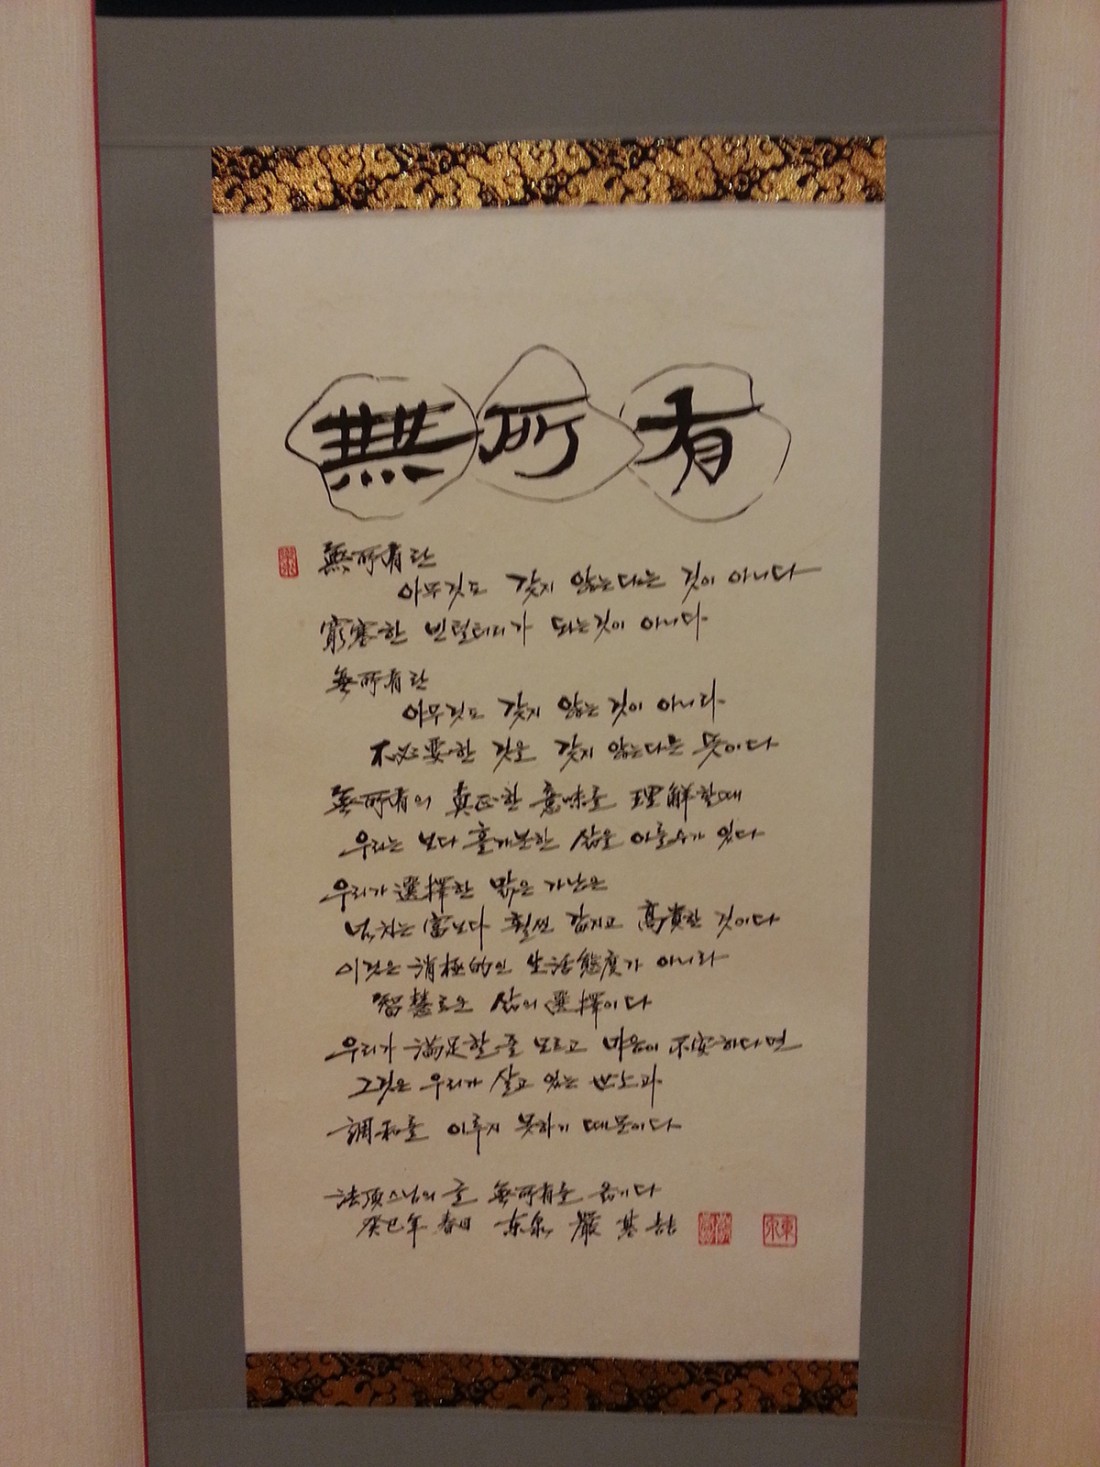 無所有
無所有란
아무것도 갖지 않는다는 것이 아니다
窮塞한 빈털터리가 되는것이 아니다
無所有란
아무것도 갖지 않는 것이 아니라
不必要한 것을 갖지 않는다는 뜻이다
無所有의 眞正한 意味를 理解할때
우리는 보다 홀가분한 삶을 이룰수가 있다
우리가 選擇한 맑은 가난은
넘치는 富보다 훨씬 값지고 高貴한 것이다
이것은 消極的인 生活態度가 아니라
智慧로운 삶의 選擇이다
우리가 滿足할 줄 모르고 마음이 不安하다면
그것은 우리가 살고 있는 世上과
調和를 이루지 못하기 때문이다
法頂스님의 글 無所有를 옮기다
癸巳年 春日 东泉 嚴基喆